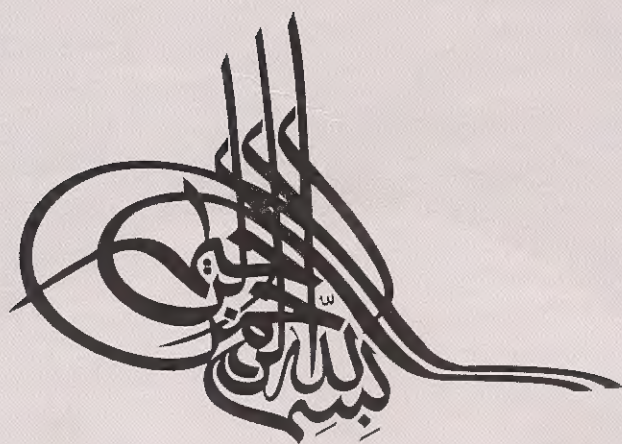 بِسِمِ اللّه الرحمن الرحيم